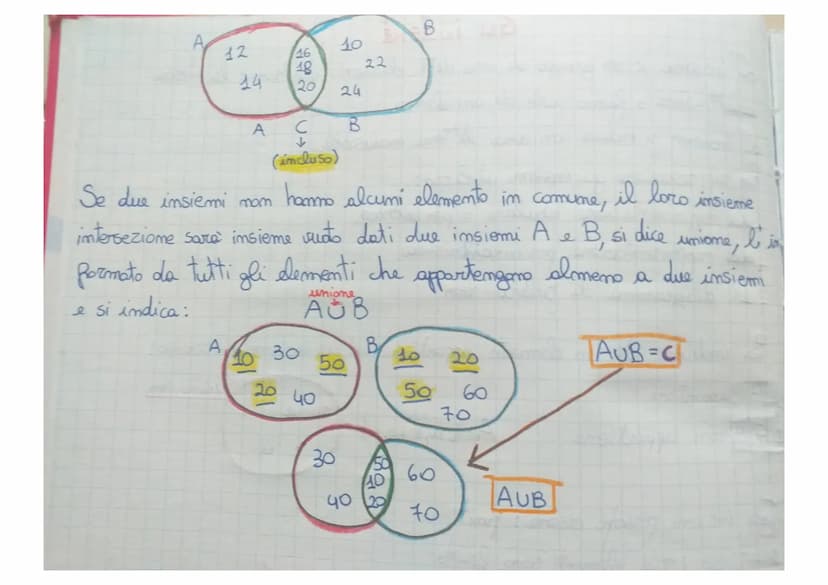 A
B
12
14
16
18
20
10
22
24
A C B
(incluso)
Se due insiemi non hanno alcuni elemento in comune, il loro insieme
intersezione sarà insieme vuoto dati due insiemi A e B, si dice unione, l'in
formato da tutti gli elementi che appartengono almeno a due insiemi
e si indica:
unione
A∪B
A
10 30 50
20 40
B
10 20
50 60
70
A∪B=C
30
40
50
10
20
60
70
A∪B